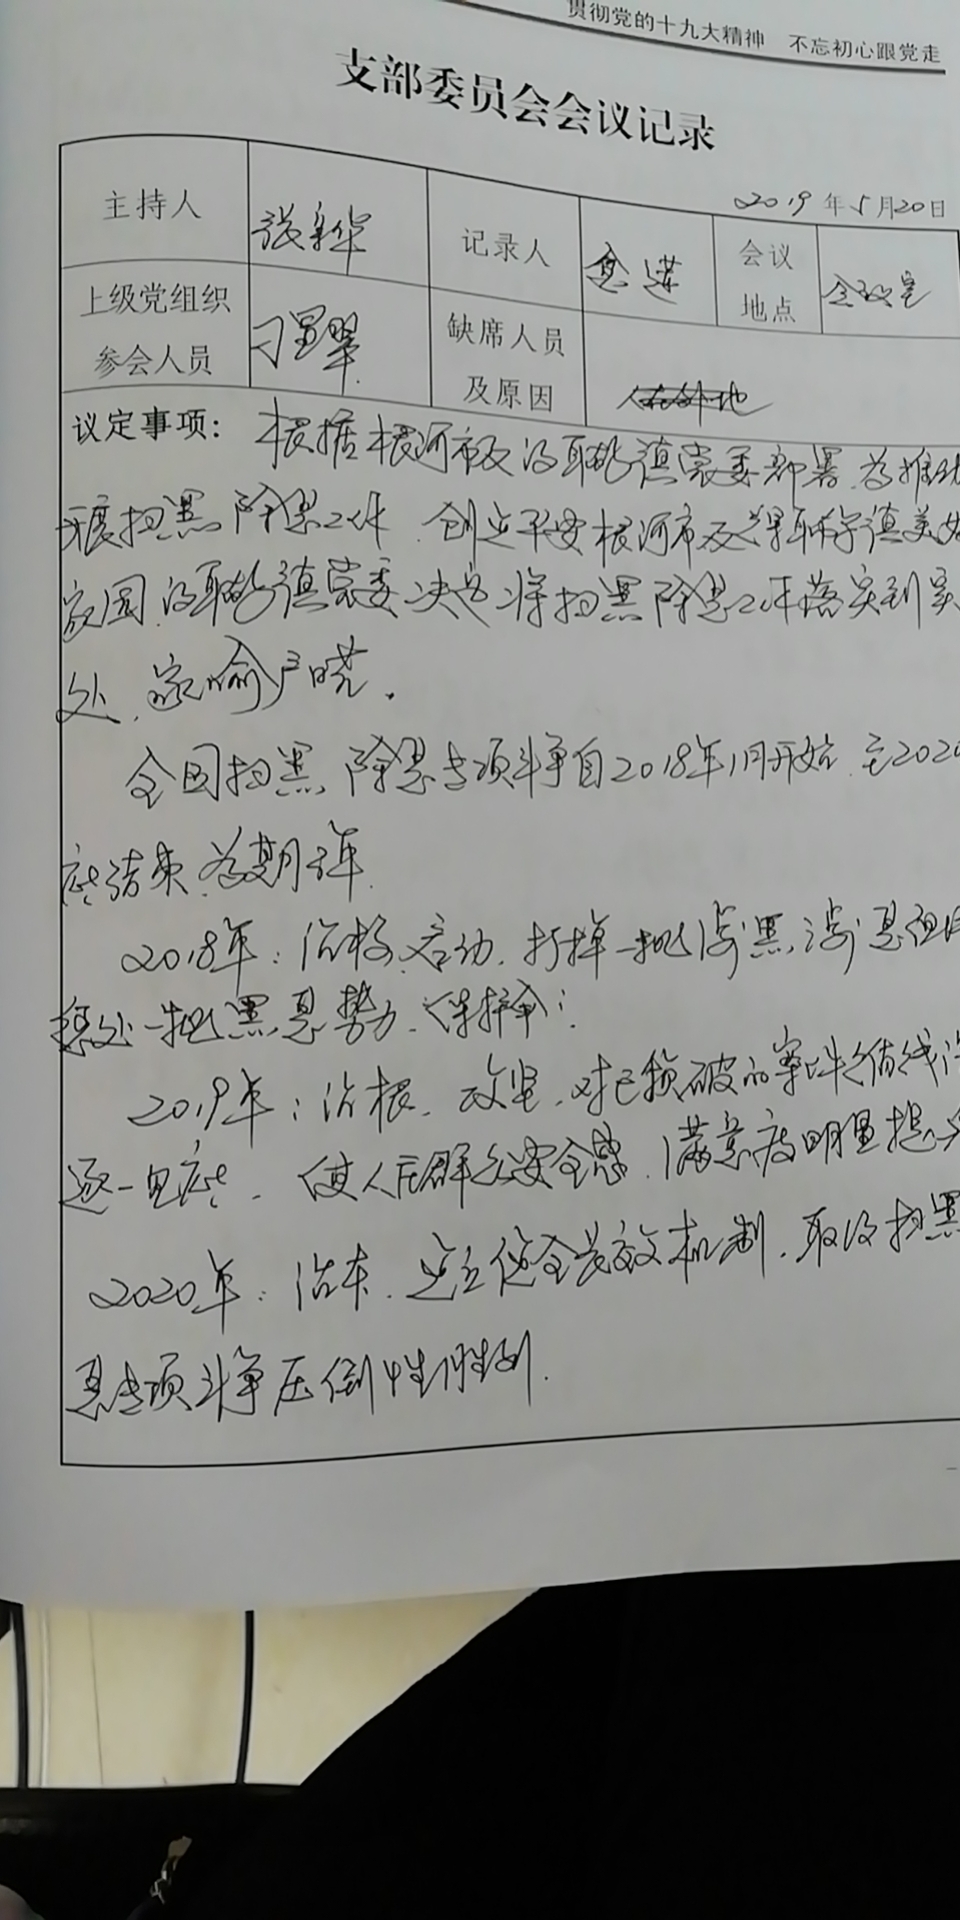 贯彻党的十九大精神 不忘初心跟党走
支部委员会会议记录
2019年5月20日
主持人 张新华 记录人 会议地点 会议室
上级党组织参会人员 缺席人员及原因
议定事项： 根据根河市及得耳布尔镇党委部署,为推动
开展扫黑除恶工作,创建平安根河市及得耳布尔镇美好
家园,得耳布尔镇党委决定将扫黑除恶工作落实到实
处,家喻户晓.
全国扫黑除恶专项斗争自2018年1月开始,至2020
底结束,为期三年.
2018年:治标.启动,打掉一批涉黑涉恶组
惩处一批黑恶势力、保护伞;
2019年:治根.攻坚,对已侦破的案件
逐一见底.使人民群众安全感.满意度明显提
2020年:治本.建立健全长效机制,取得扫黑
恶专项斗争压倒性胜利.